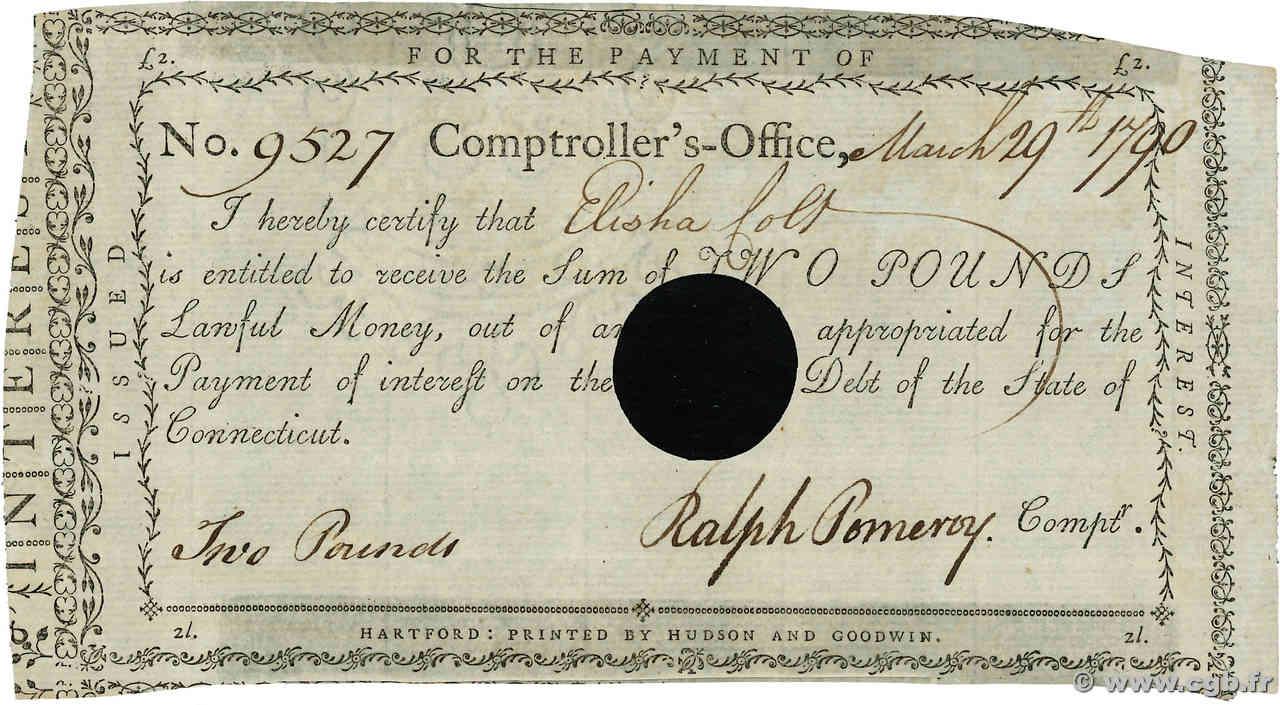 £2. FOR THE PAYMENT OF £2.
No. 9527 Comptroller's-Office, March 29th 1790
I hereby certify that Elisha Colt
is entitled to receive the Sum of TWO POUNDS
Lawful Money, out of appropriated for the
Payment of intereſt on the Debt of the State of
Connecticut.
Two Pounds Ralph Pomeroy. Comptr.
2l. HARTFORD: PRINTED BY HUDSON AND GOODWIN. 2l.
ISSUED
INTEREST.
INTERES
© www.cgb.fr